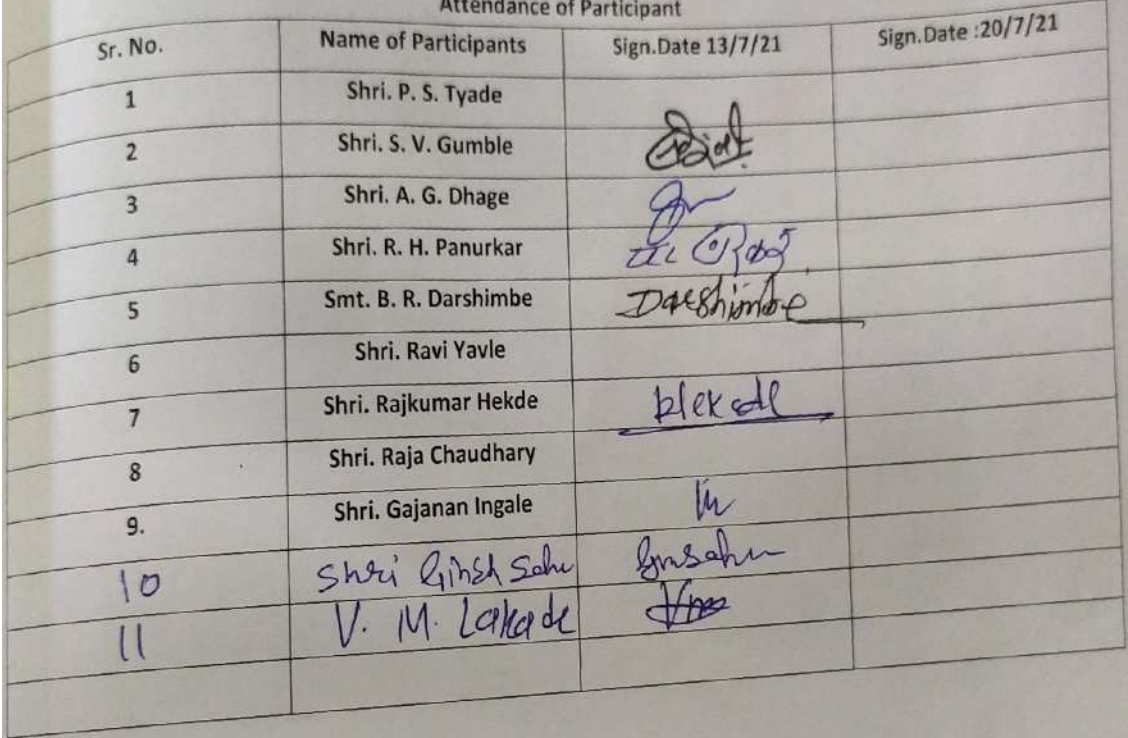 Attendance of Participant
Sr. No. Name of Participants Sign.Date 13/7/21 Sign.Date :20/7/21
1 Shri. P. S. Tyade
2 Shri. S. V. Gumble
3 Shri. A. G. Dhage
4 Shri. R. H. Panurkar
5 Smt. B. R. Darshimbe Darshimbe
6 Shri. Ravi Yavle
7 Shri. Rajkumar Hekde
8 Shri. Raja Chaudhary
9. Shri. Gajanan Ingale
10 Shri Sahu
11 V. M. Lakade